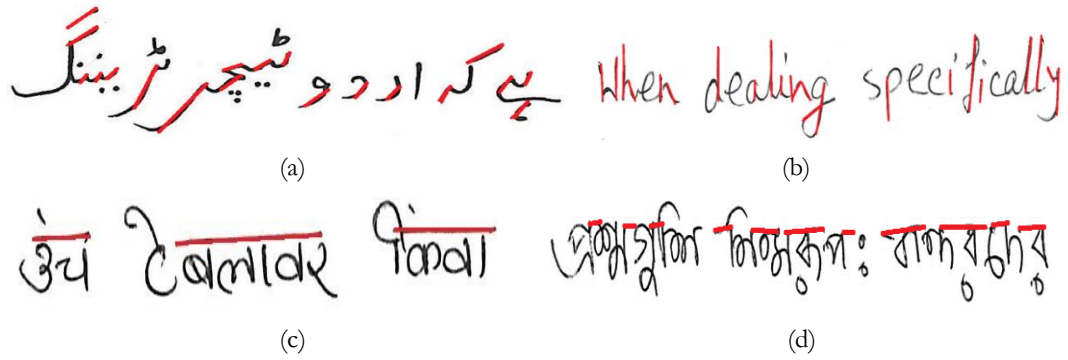 ہے کہ اردو ٹیچر ٹریننگ When dealing specifically
(a) (b)
उंच टेबलावर किंवा প্রশ্নগুলি নিম্নরূপঃ
(c) (d)